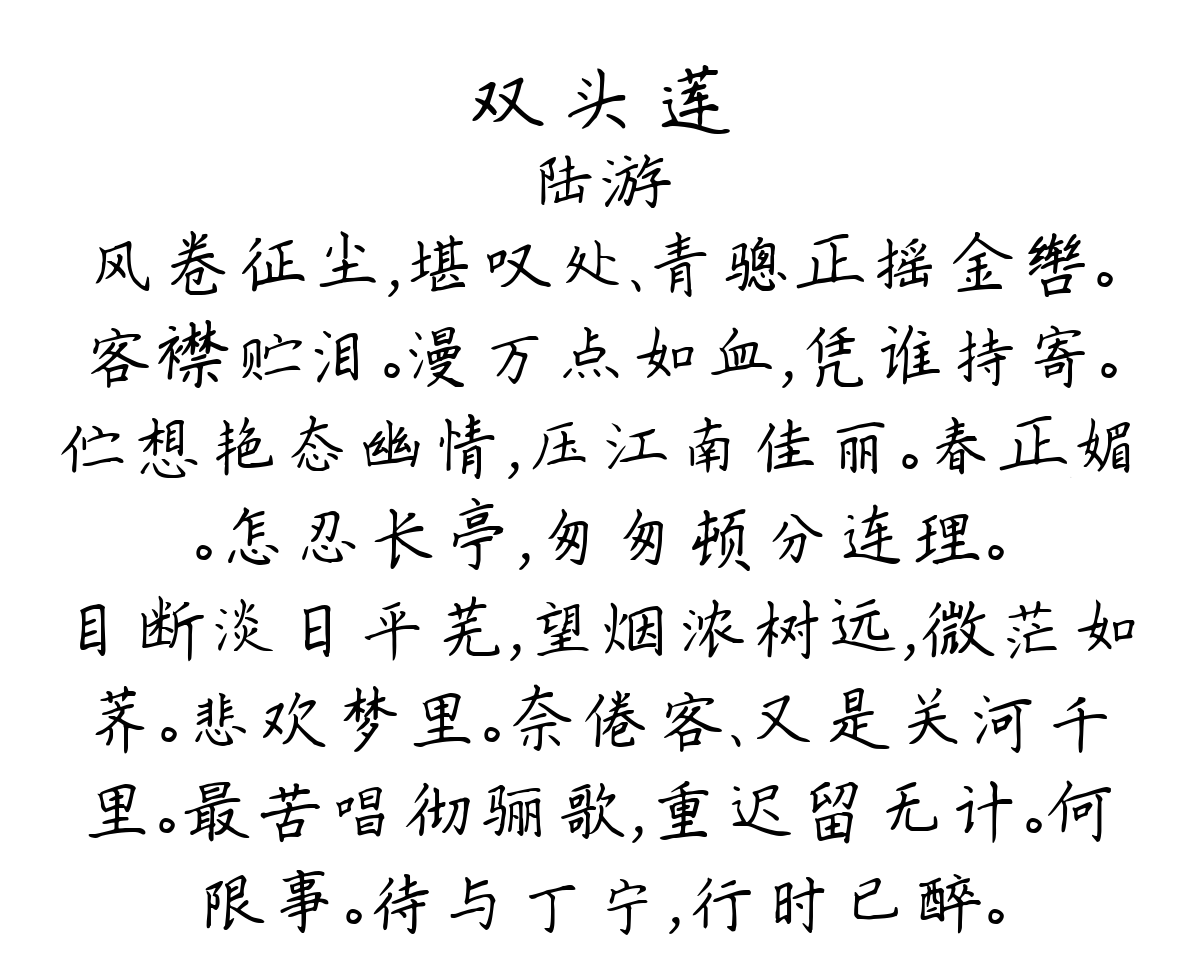 双头莲
陆游
风卷征尘,堪叹处、青骢正摇金辔。
客襟贮泪。漫万点如血,凭谁持寄。
伫想艳态幽情,压江南佳丽。春正媚
。怎忍长亭,匆匆顿分连理。
目断淡日平芜,望烟浓树远,微茫如
荠。悲欢梦里。奈倦客、又是关河千
里。最苦唱彻骊歌,重迟留无计。何
限事。待与丁宁,行时已醉。